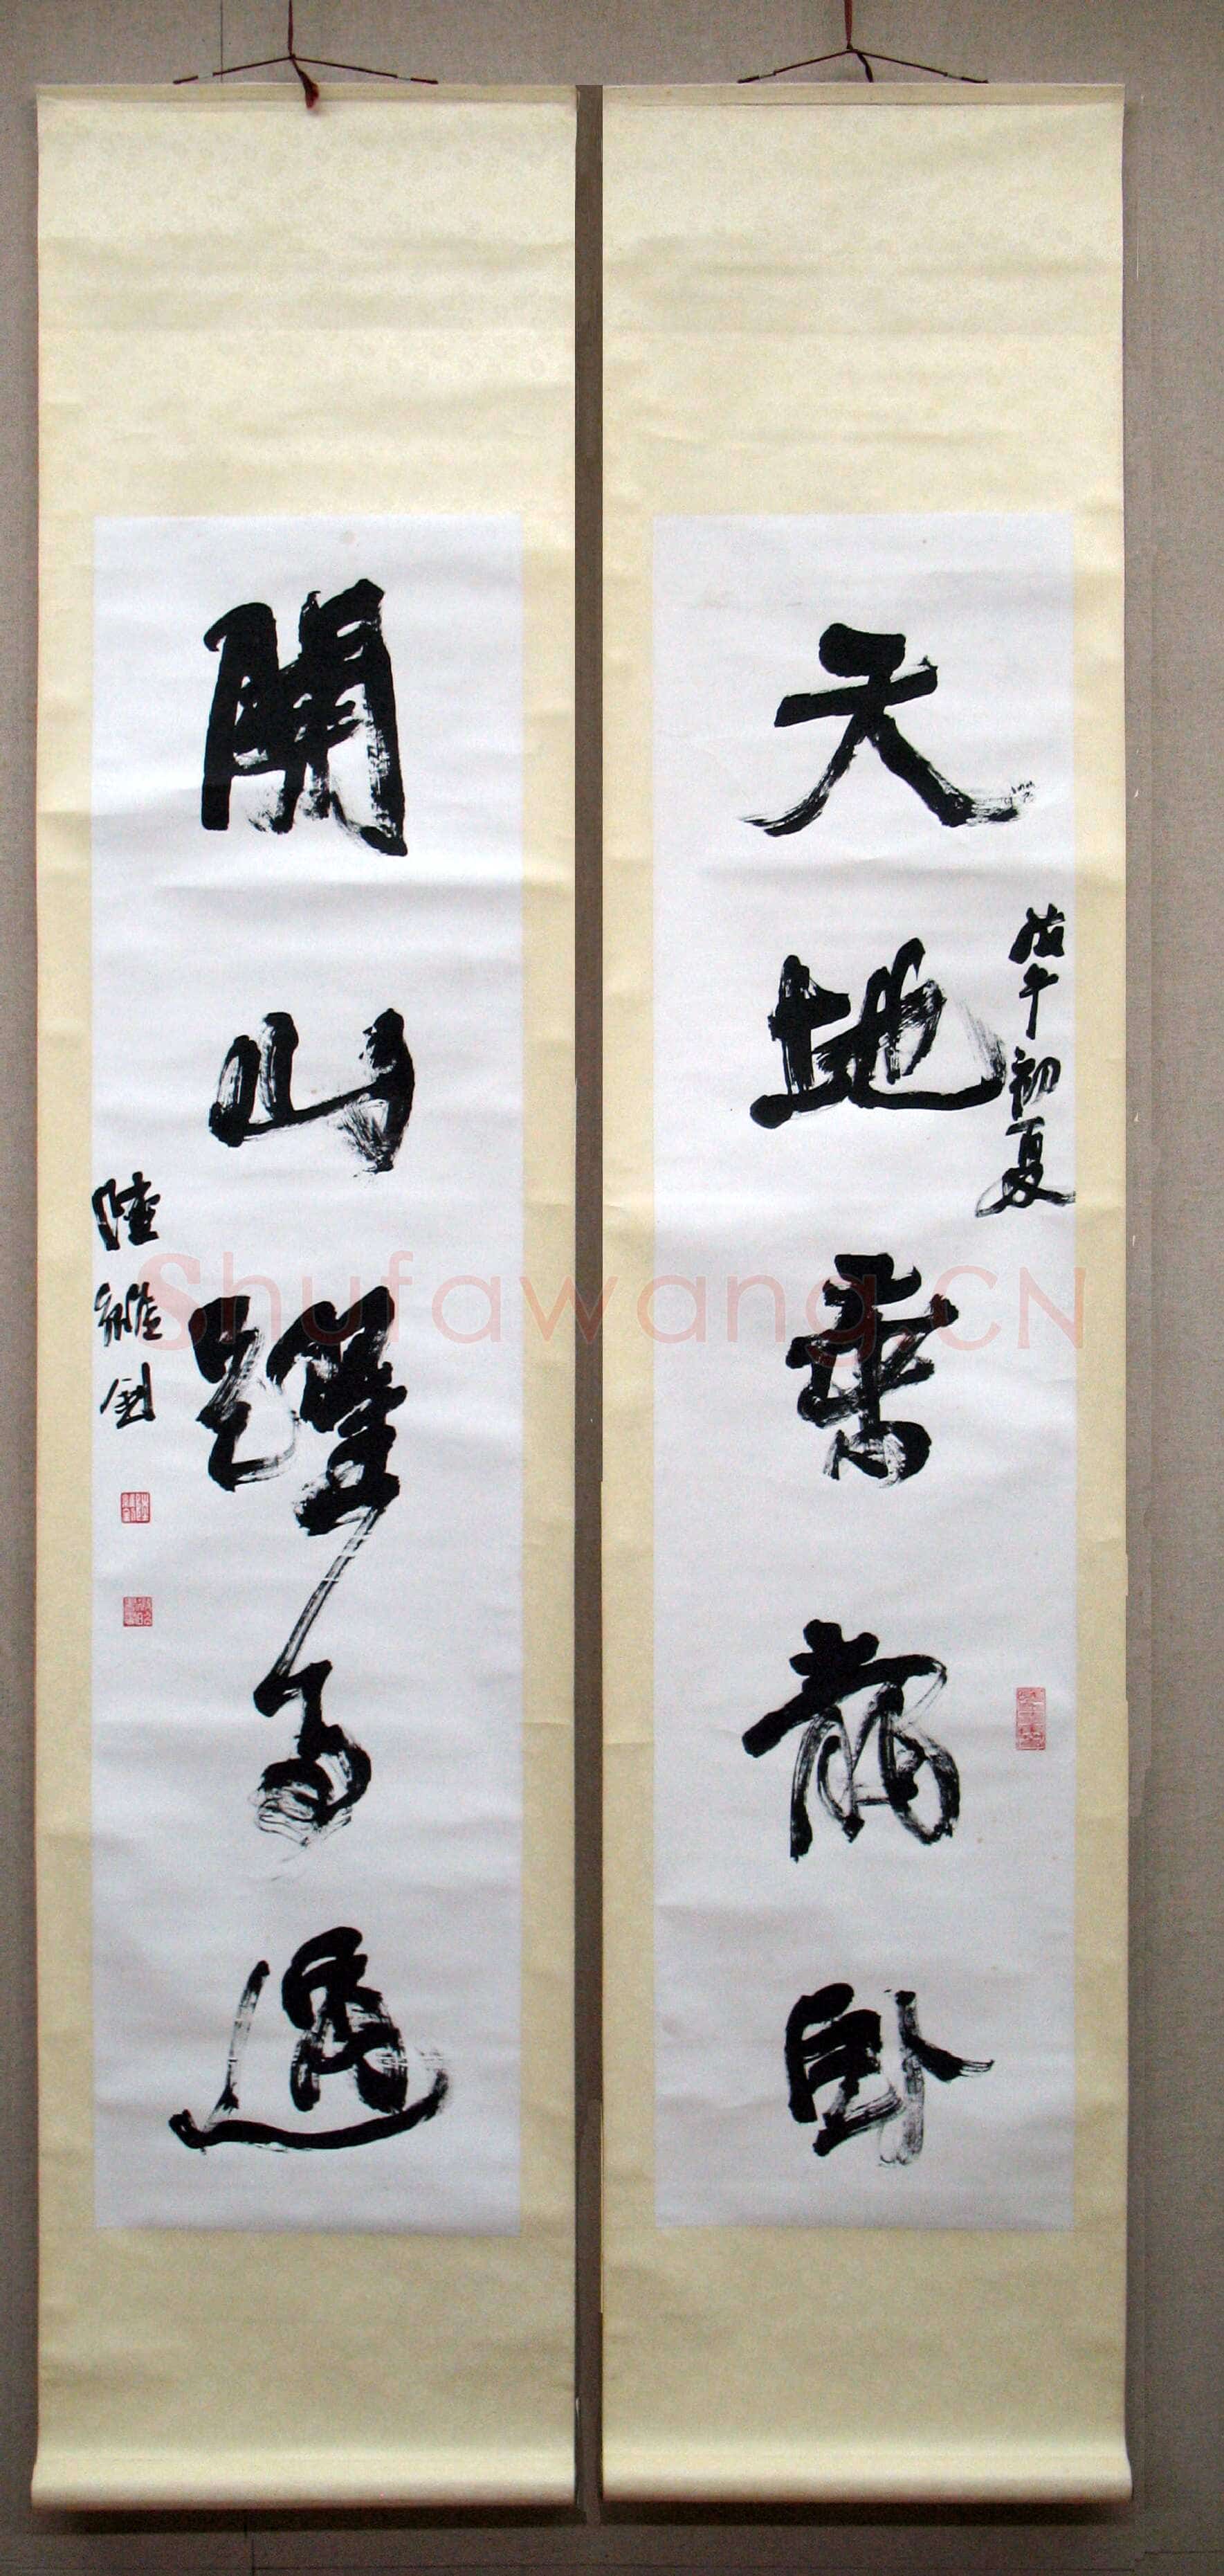 天地乘龍卧
戊午初夏
關山躍馬過
陸維釗
Shufawang.CN